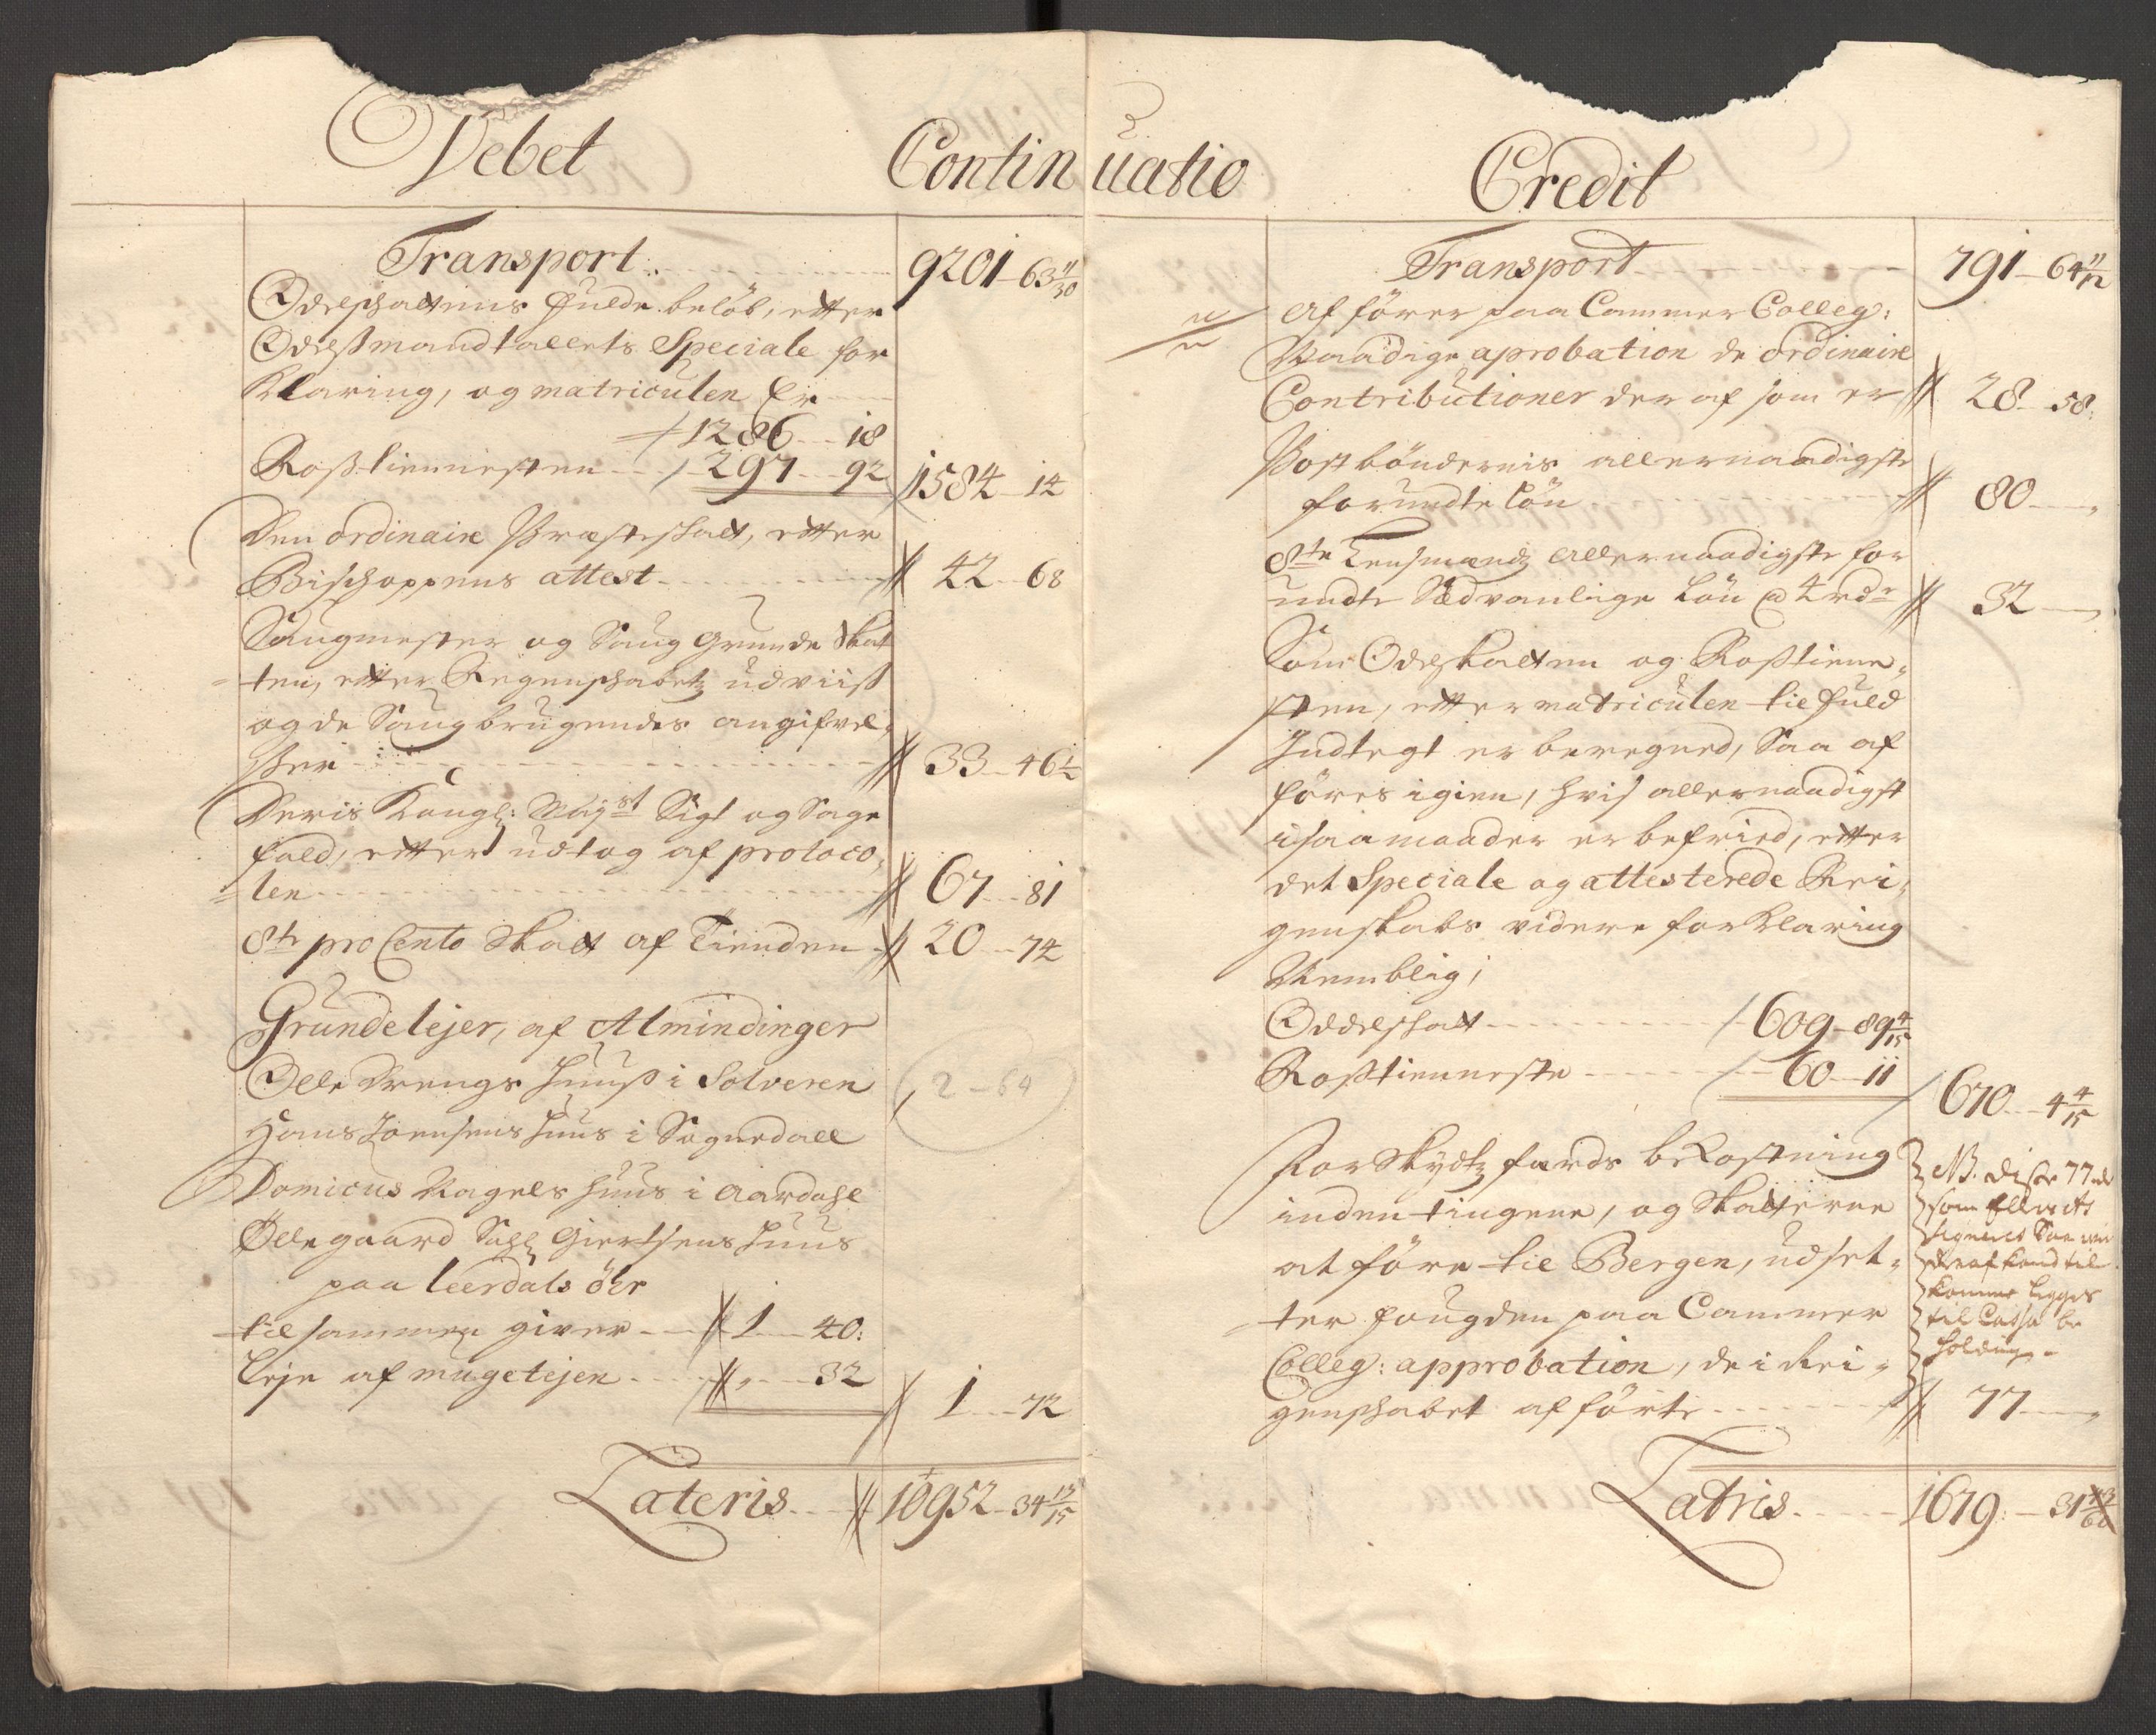 Debet
Continuatio
Credit
Transport 9201 - 63 11/30
Odelschattens fulde beløb, efter
Odelsmandtallets Speciale for
klaring, og matriculen Er
1286 - 18
Rostiennesten 297 - 92 1584 - 14
Den ordinaire Præsteskatt, efter
Bischoppens attest 42 - 68
Saugmester og Saug Grunde Skat
ten, efter Regenschabetz udviiss
og de Saugbrugendes angifvel,
ser 33 - 46 1/2
Deris Kongl: Mayst Sigt og Sage
fald, efter udtog af protoco,
len 67 - 81
8te pro Cento Skatt af Tienden 20 - 74
Grundelejer, af Almindinger
Olle Drengs Huuss i Solveren 2 - 64
Hans Joensens Huus i Sognedall
Domicus Nagels Huus i Aardahl
Ollegaard Sahl Giertsens Huus
paa Leerdals öhr
tilsammen giver 1 - 40:
Leje af mugetejen - 32 1 - 72
Lateris 10952 - 34 13/15
Transport 791 - 64 11/12
Af förer paa Cammer Colleg:
Naadige aprobation de ordinaire
Contributioner der af som er 28 - 58:
Postböndernis allernaadigste
forundte Lön 80 -
8te Lensmænd allernaadigste for
undte Sædvanlige Lön a 4 rdr 32 -
Som Odelskatten og Rostiene,
sten, efter matriculen til fuld
Indtegt er beregned, Saa af
föres igien, hvis allernaadigst
i saa maader er befried, efter
det Speciale og attesterede Rei,
genskabs videre forklaring
Nemblig;
Oddelschatt 609 - 89 4/15
Rostienneste 60 - 11
670 - 4 4/15
For Skydtz færds bekostning
inden tingene, og Skatterne
at före til Bergen, udset,
ter fougden paa Cammer
Colleg: approbation, de i Rei,
genschabet afförte 77 -
NB. disse 77 rdr
som ellers
Saa
deraf kand til
komme legges
til Cassa be
holding -
Latris 1679 - 31 43/60